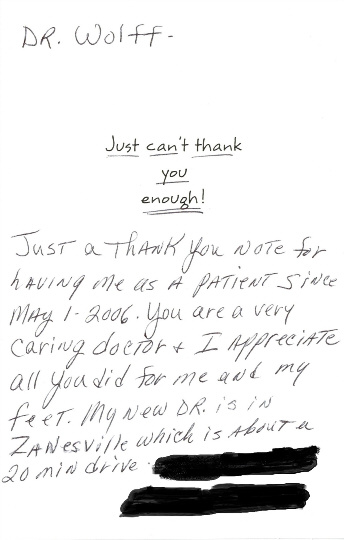 DR. Wolff-
Just can't thank
you
enough!
JUST a THANK You NOTE for
having me as A PATIENT SINCE
MAY 1-2006. You are a very
caring doctor & I APPRECIATE
all you did for me and my
feet. My NEW DR. is in
ZANESVILLE which is About a
20 min drive.